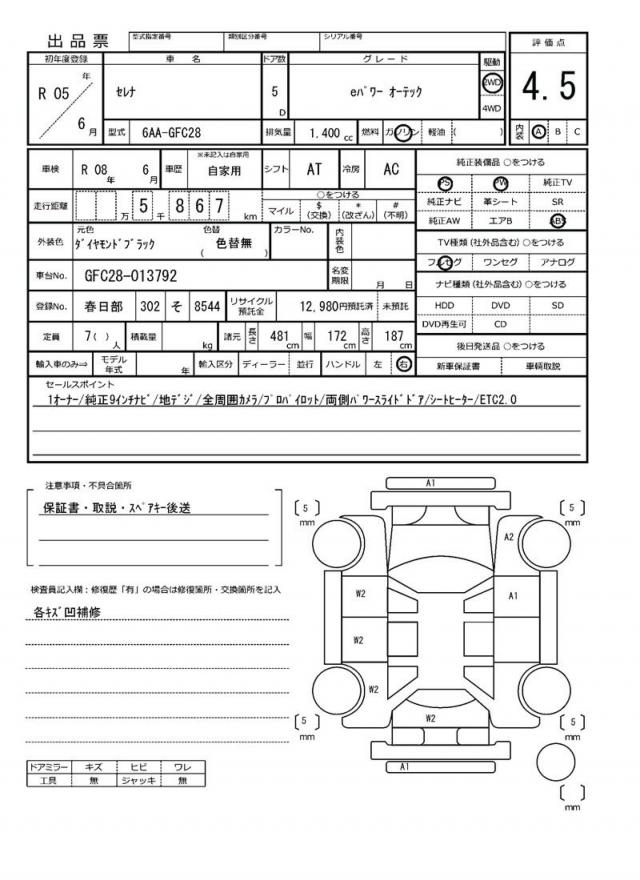 出品票
型式指定番号 類別区分番号 シリアル番号
初年度登録 車名 ドア数 グレード 駆動 評価点
R 05 年 6 月 セレナ 5 D eパワー オーテック 2WD 4WD 4.5
型式 6AA-GFC28 排気量 1.400 cc 燃料 ガソリン 軽油 ( ) 内装 A B C
車検 R 08 年 6 月 車歴 ※未記入は自家用 自家用 シフト AT 冷房 AC
走行距離 万 5 千 8 6 7 km ○をつける マイル $ (交換) * (改ざん) # (不明)
外装色 元色 ダイヤモンドブラック 色替 ( 色替無 ) カラーNo. 内装色
車台No. GFC28-013792 名変期限 月 日
登録No. 春日部 302 そ 8544 リサイクル預託金 12,980円預託済 未預託
定員 7( ) 人 積載量 kg 諸元 長さ 481 cm 幅 172 cm 高さ 187 cm
輸入車のみ⇒ モデル年式 年 輸入区分 ディーラー 並行 ハンドル 左 右
純正装備品 ○をつける
PS PW 純正TV
純正ナビ 革シート SR
純正AW エアB ABS
TV種類 (社外品含む) ○をつける
フルセグ ワンセグ アナログ
ナビ種類 (社外品含む) ○をつける
HDD DVD SD
DVD再生可 CD
後日発送品 ○をつける
新車保証書 車輌取説
セールスポイント
1オーナー/純正9インチナビ/地デジ/全周囲カメラ/プロパイロット/両側パワースライドドア/シートヒーター/ETC2.0
注意事項・不具合箇所
保証書・取説・スペアキー後送
検査員記入欄：修復歴「有」の場合は修復箇所・交換箇所を記入
各キズ凹補修
ドアミラー キズ ヒビ ワレ
工具 無 ジャッキ 無
A1
[ 5 ] mm [ 5 ] mm
A2
W2 A1
W2
W2
W2
[ 5 ] mm [ 5 ] mm
A1
[ ] mm